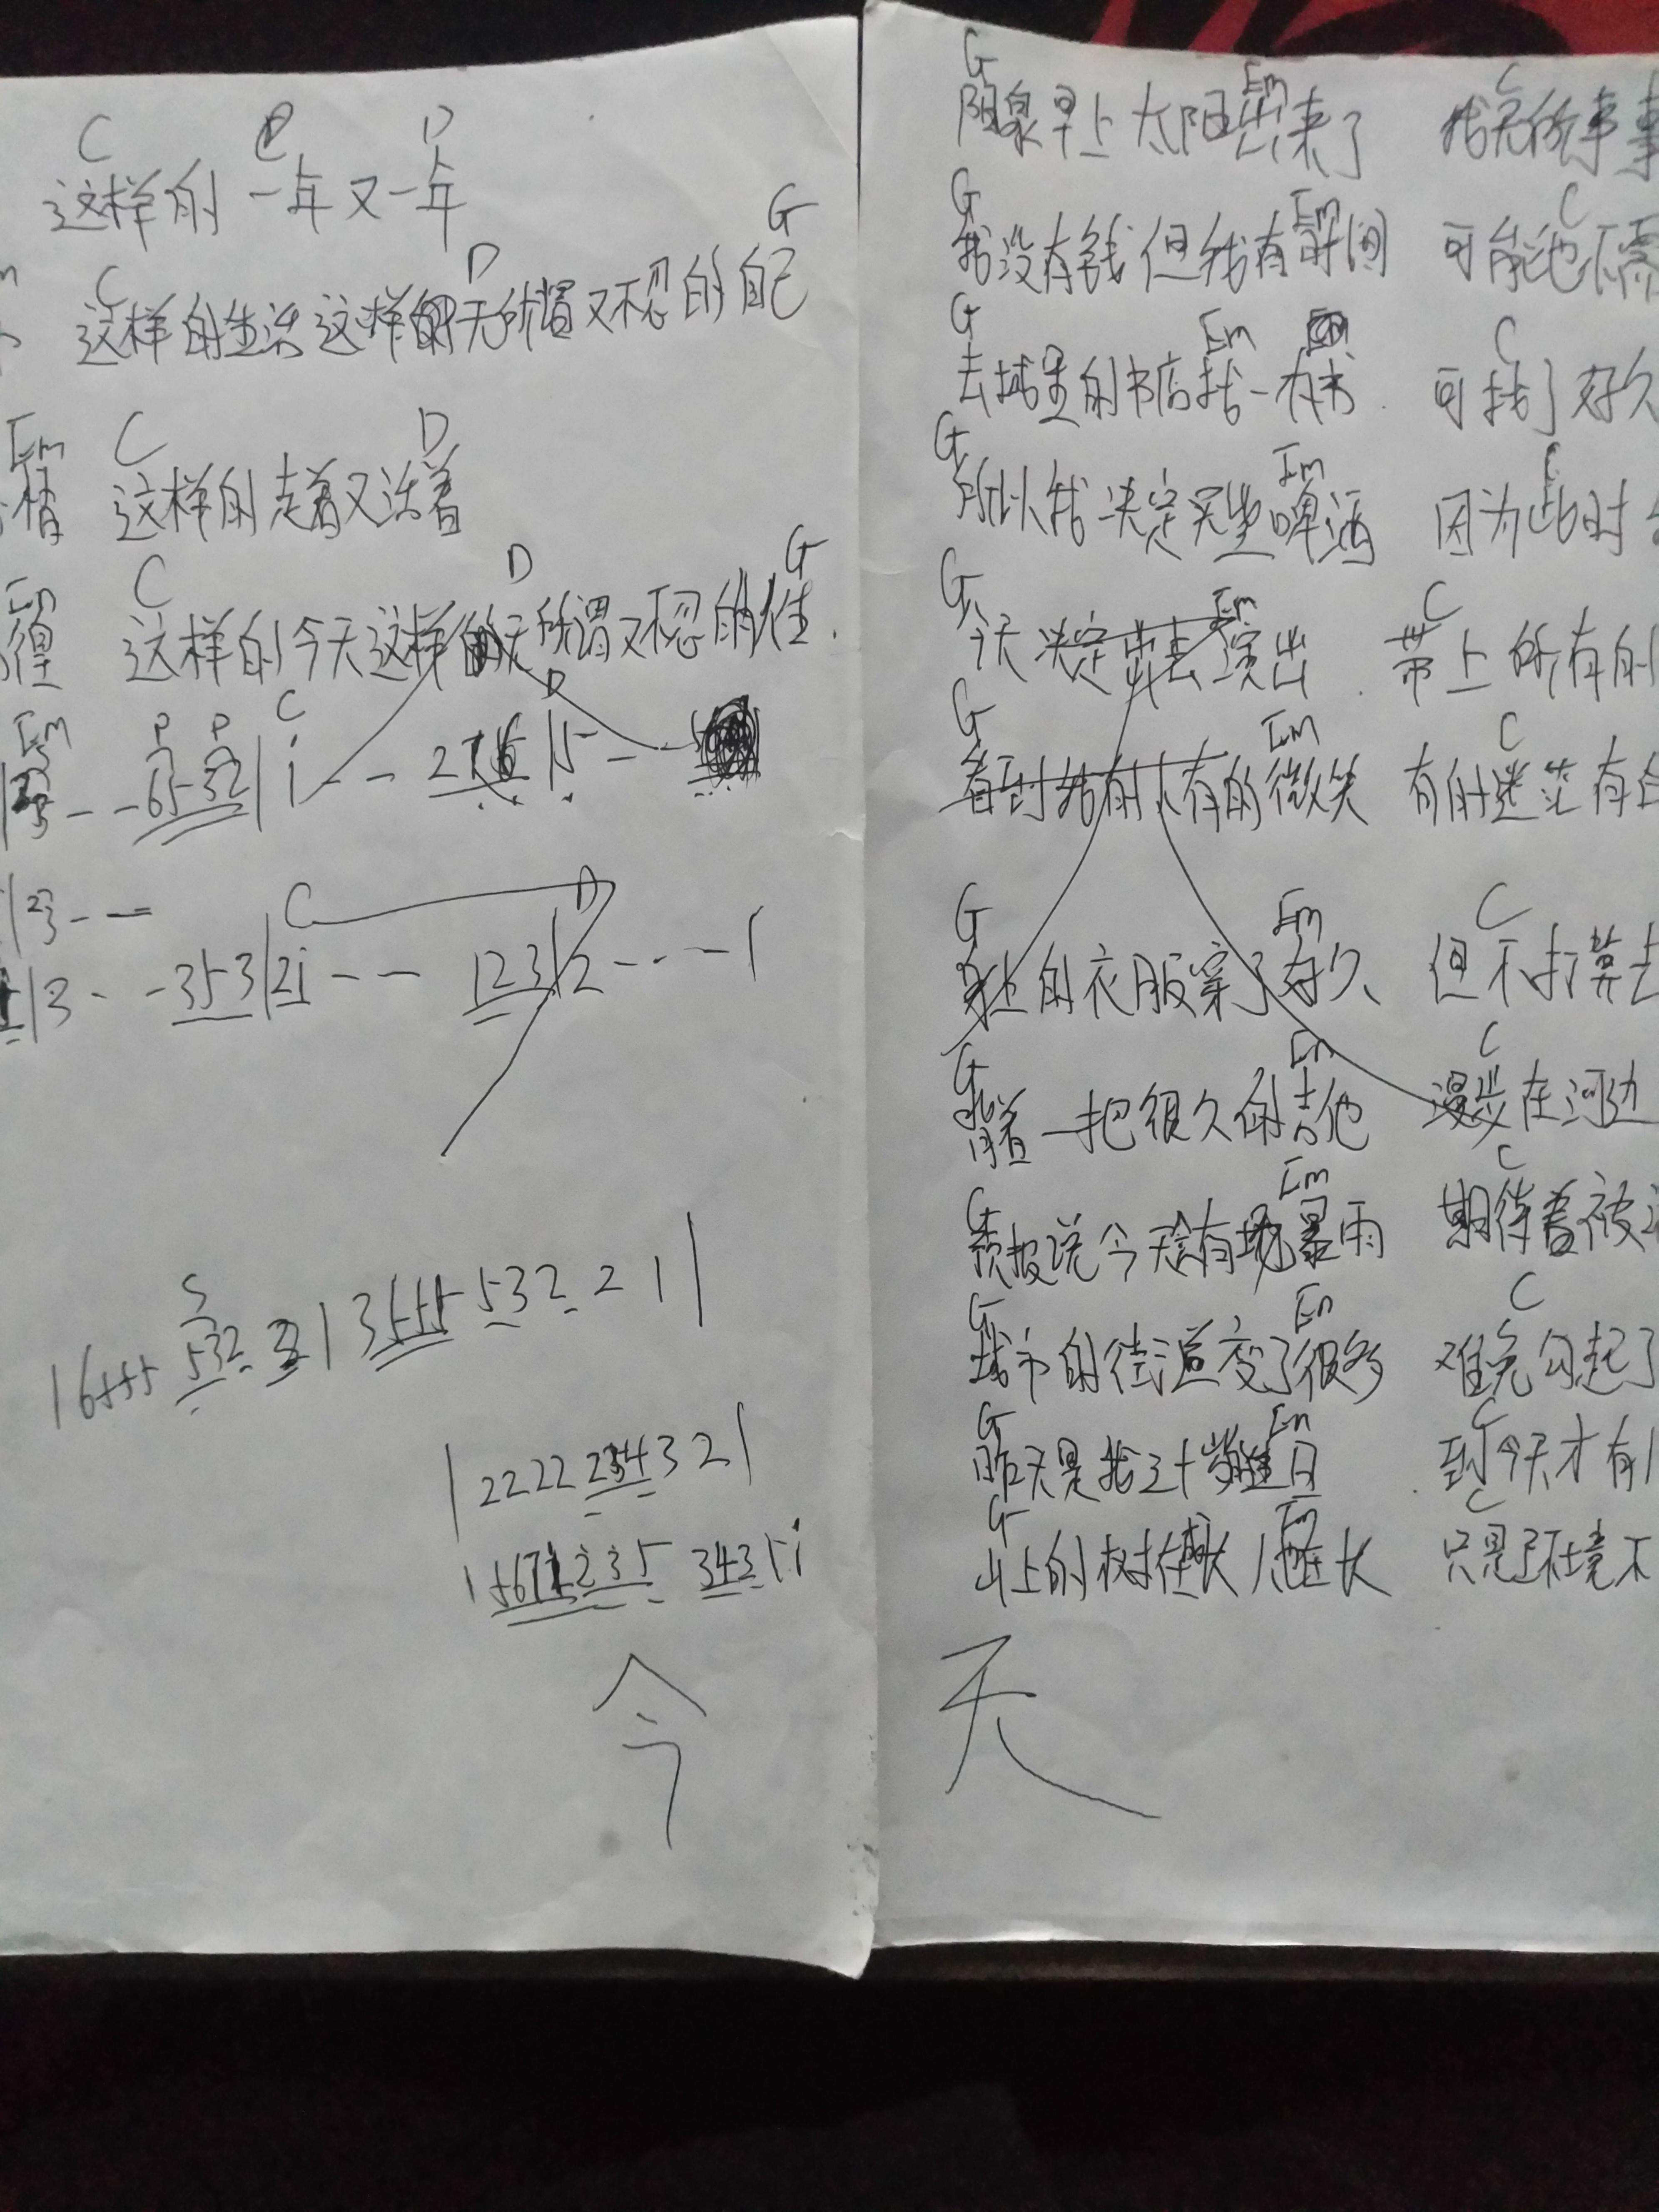 C D
这样的一年又一年
C D G
这样的生活这样的无所谓又不忍的自己
Em C D
情 这样的走着又活着
Em C D G
这样的今天这样的无所谓又不忍的人生.
Em P P C D
3 - - 6532 | i - - 2 7 6 | 5 -
C D
| 23 - -
| 3 - - 353 | 2i - - 123 | 2 - - - |
S
| 6555 532 3 | 3555 532 2 1 |
| 2222 234 3 2 |
今
G Em C
阳泉早上太阳出来了 我无所事事
G Em C
我没有钱但我有时间 可能也不需
G Em C
去城里的书店找一本书 可找了好久
G Em C
所以我决定买些啤酒 因为此时
G Em C
今天决定出去演出 带上所有的
G Em C
看到没有的微笑 有的迷茫有的
G Em C
身上的衣服穿了好久 但不打算去
G Em C
背着一把很久的吉他 漫步在河边
G Em C
预报说今天会有场暴雨 期待着被
G Em C
城市的街道变了很多 难免勾起了
G Em C
昨天是我三十岁生日 到今天才有
G Em C
山上的树在长人也在长 只是环境不
天